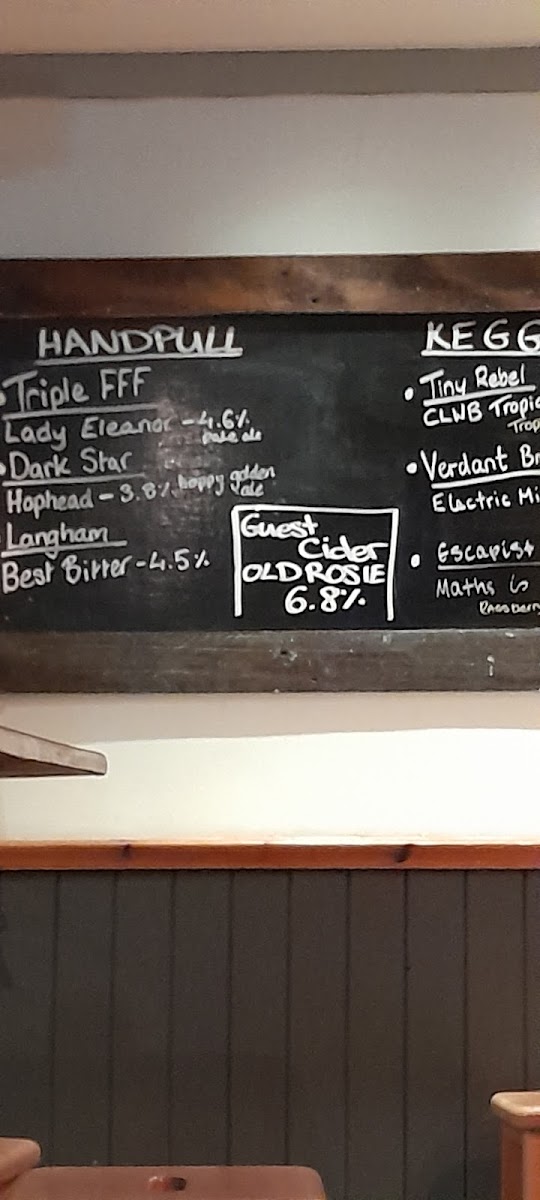 HANDPULL
Triple FFF
Lady Eleanor - 4.6%
Pale ale
Dark Star
Hophead - 3.8% hoppy golden
ale
Langham
Best Bitter - 4.5%
Guest
Cider
OLD ROSIE
6.8%
KEGG
Tiny Rebel
CLWB Tropic
Trop
Verdant Br
Electric Mi
Escapist
Maths is
Raspberry